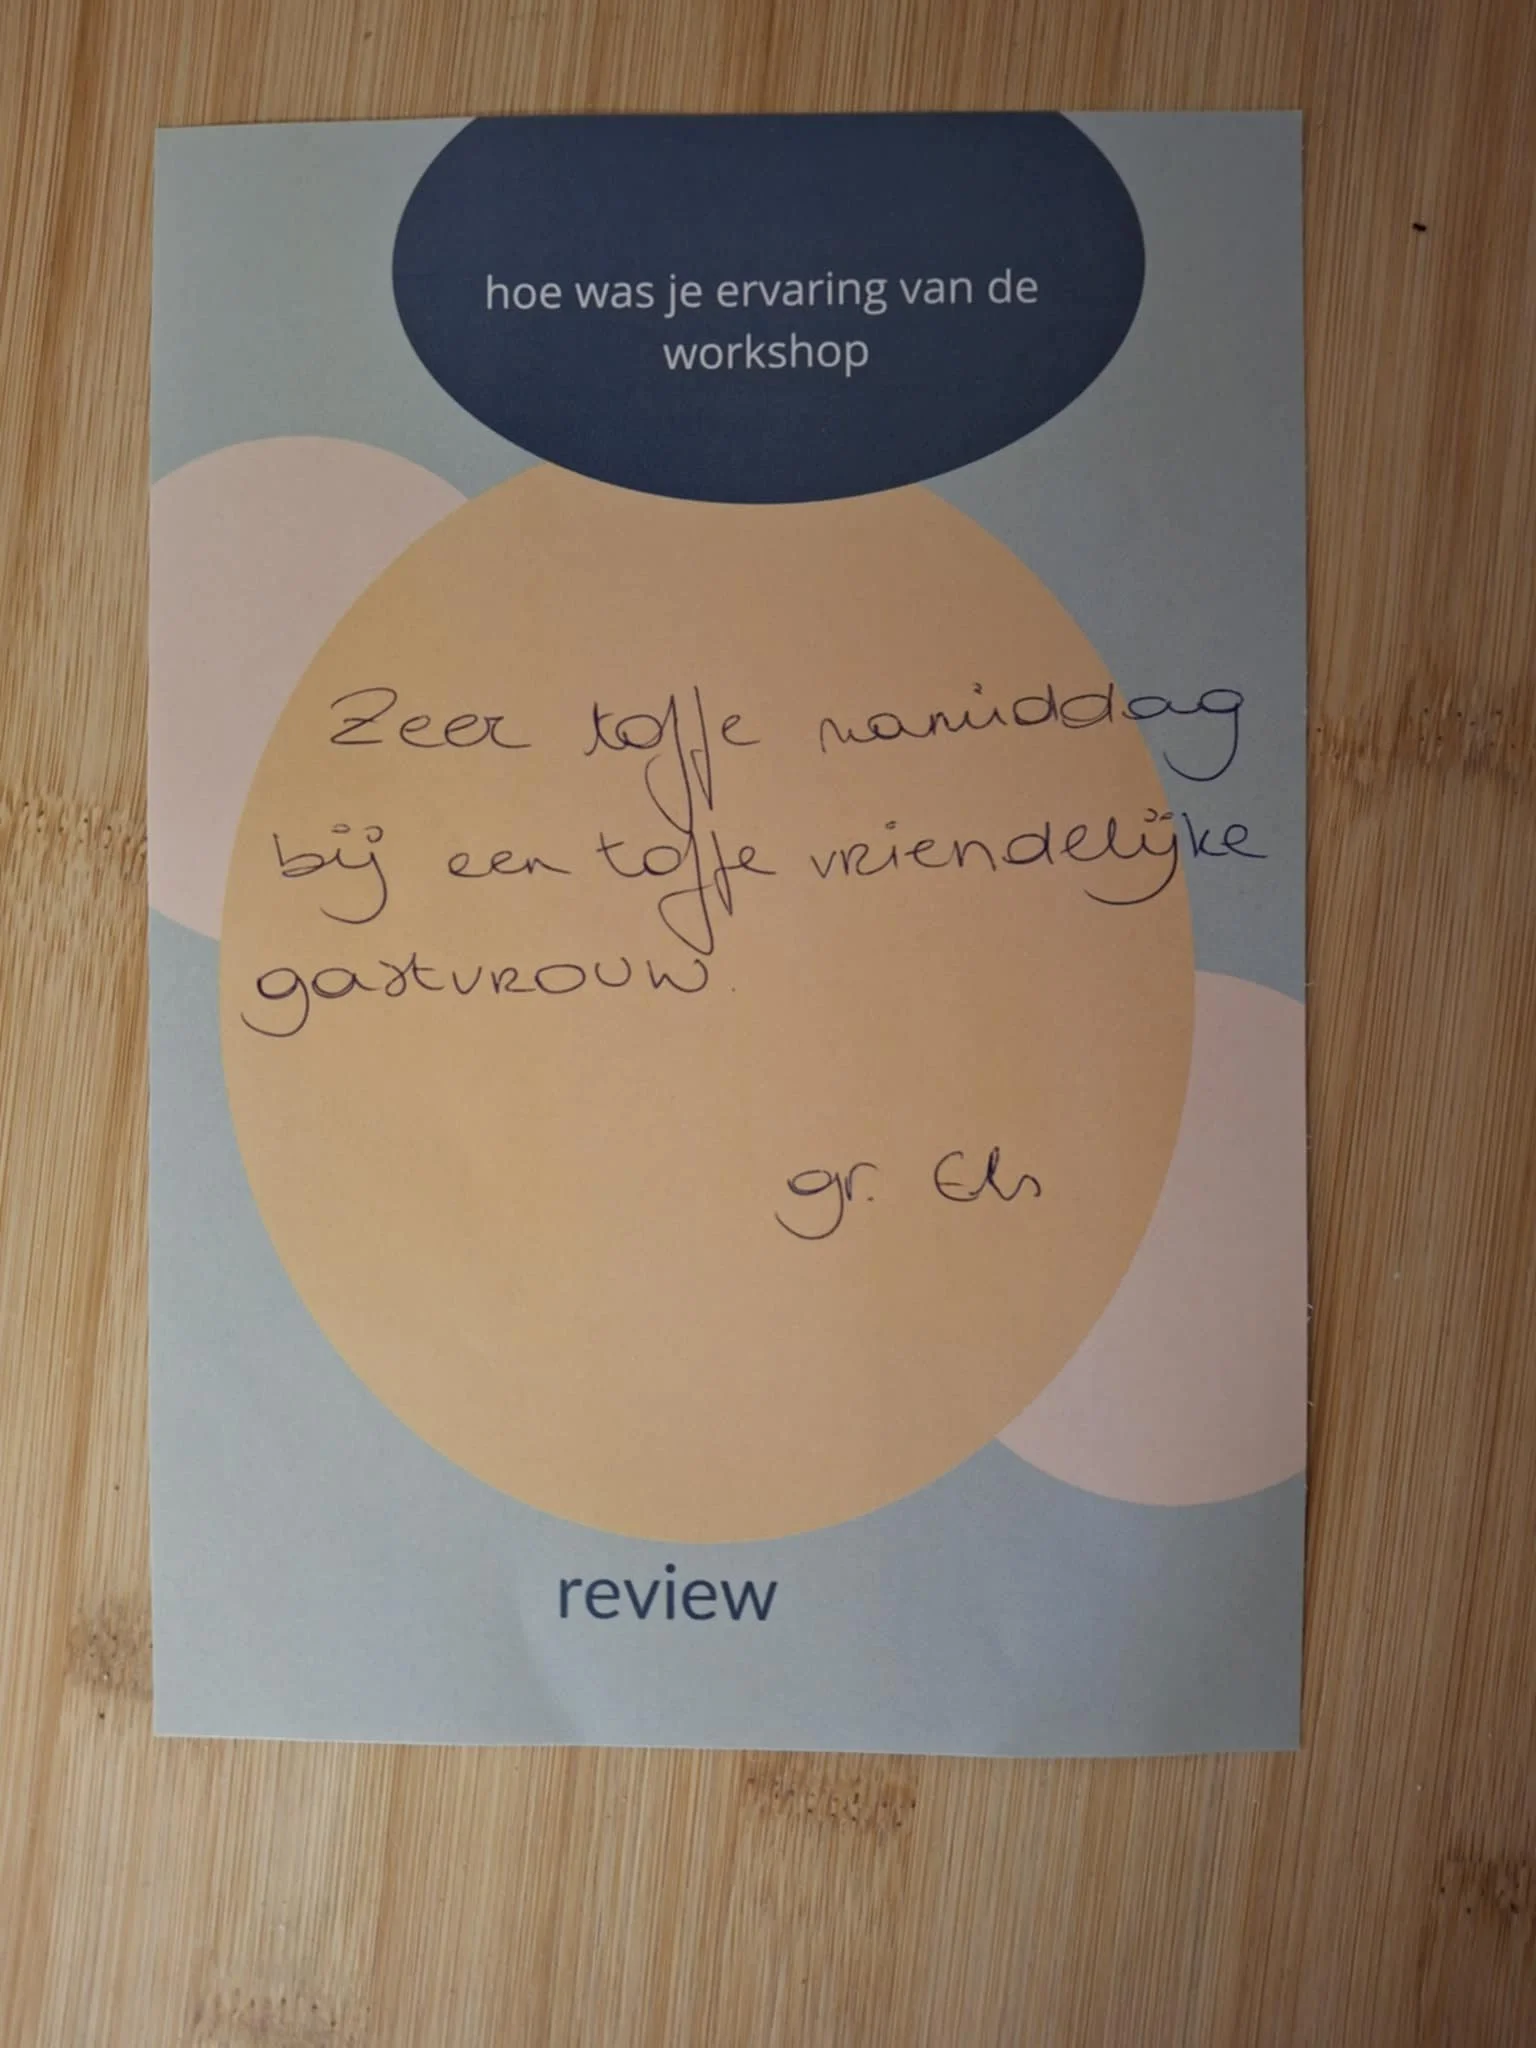 hoe was je ervaring van de
workshop
Zeer toffe namiddag
bij een toffe vriendelijke
gastvrouw.
gr. Els
review